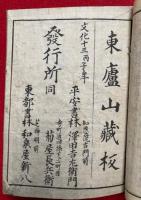 東廬山藏板
文化十三丙子年
發行所
平安書林 澤田吉左衛門
同
菊屋長兵衛
東都書林 和泉屋新八